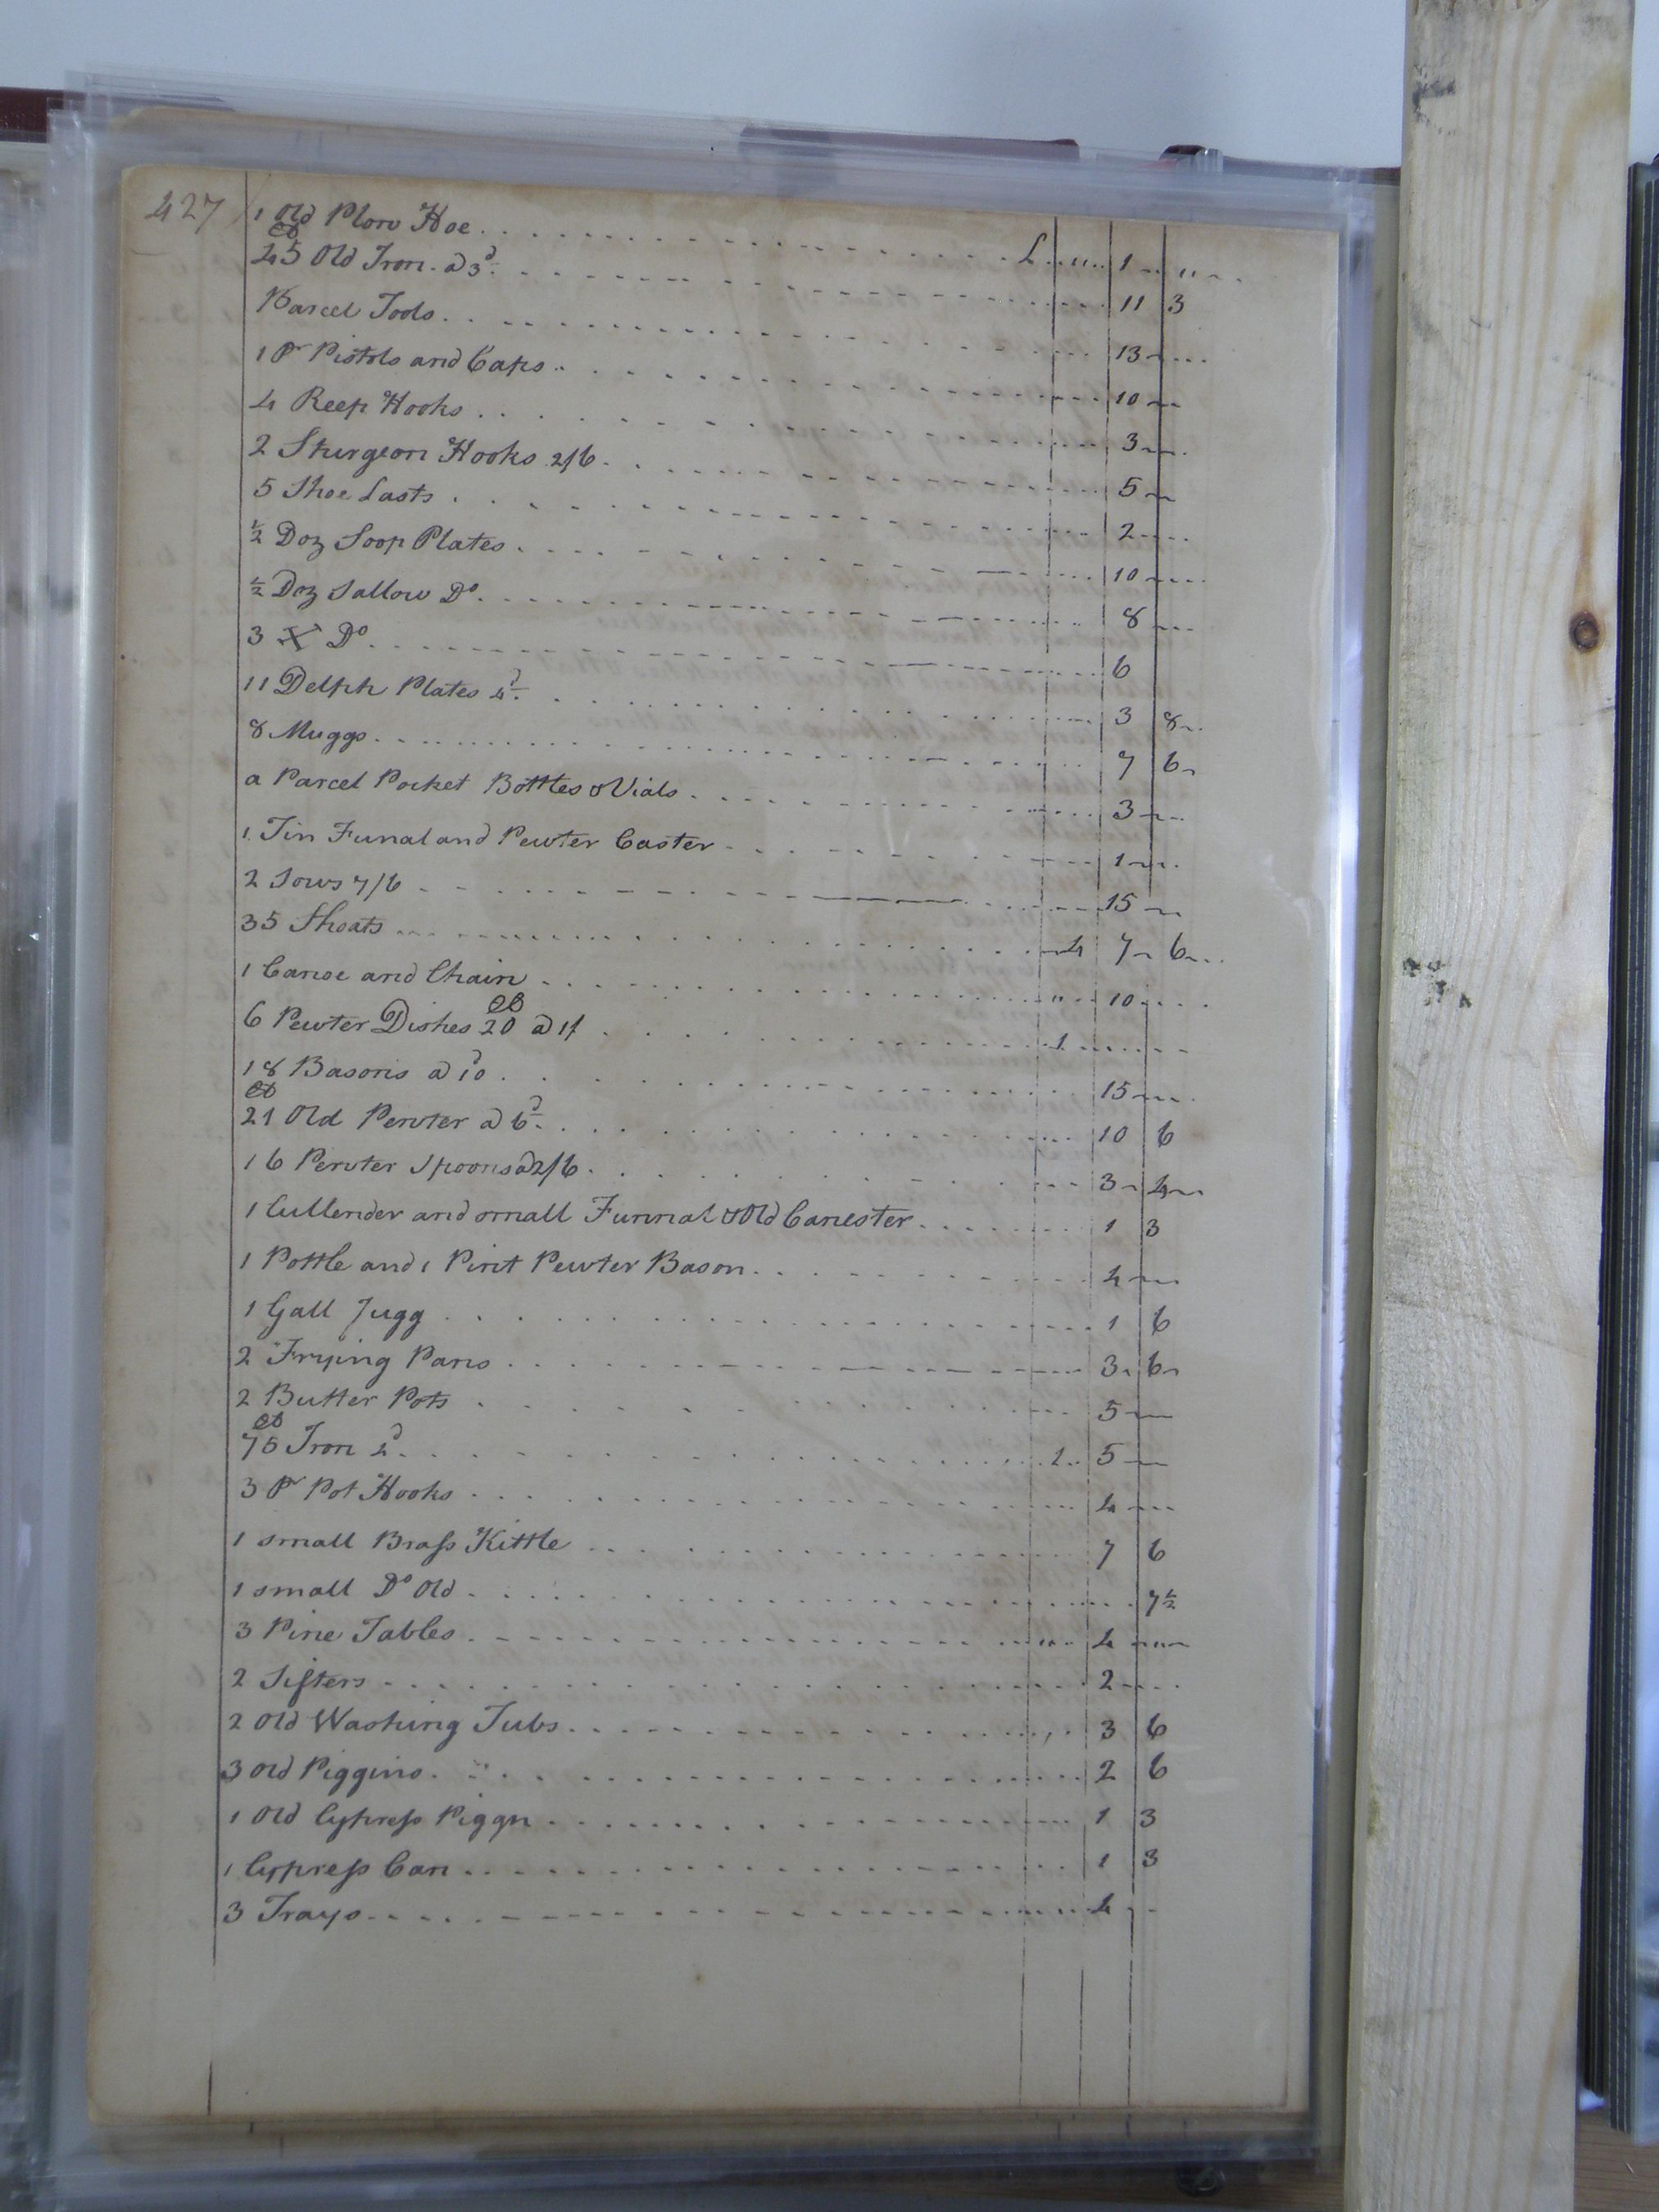 427
1 Old Plow Hoe £ " 1 "
45 lb Old Iron a 3d 11 3
Parcel Tools 13
1 Pr Pistols and Caps 10
4 Reep Hooks 3
2 Sturgeon Hooks 2/6 5
5 Shoe Lasts 2
½ Doz Soop Plates 10
½ Doz Sallow Do 8
3 X Do 6
11 Delph Plates 4d 3 8
8 Muggs 7 6
a Parcel Pocket Bottles & Vials 3
1 Tin Funal and Pewter Caster 1
2 Sows 7/6 15
35 Shoats 4 7 6
1 Canoe and Chain " 10
6 Pewter Dishes 20 lb a 1/ 1
18 Basons a 10d 15
21 lb Old Pewter a 6d 10 6
16 Pewter Spoons a 2/6 3 4
1 Cullender and small Funnal & Old Canester 1 3
1 Pottle and 1 Pint Pewter Bason 4
1 Gall Jugg 1 6
2 Frying Pans 3 6
2 Butter Pots 5
75 lb Iron 4d 1 5
3 Pr Pot Hooks 4
1 small Brass Kittle 7 6
1 small Do Old 7½
3 Pine Tables " 4 "
2 Sifters 2
2 Old Washing Tubs 3 6
3 Old Piggins 2 6
1 Old Cypress Piggn 1 3
1 Cypress Can 1 3
3 Trays 4